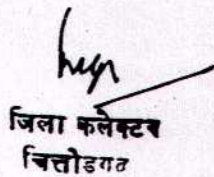 जिला कलेक्टर
चित्तोडगढ